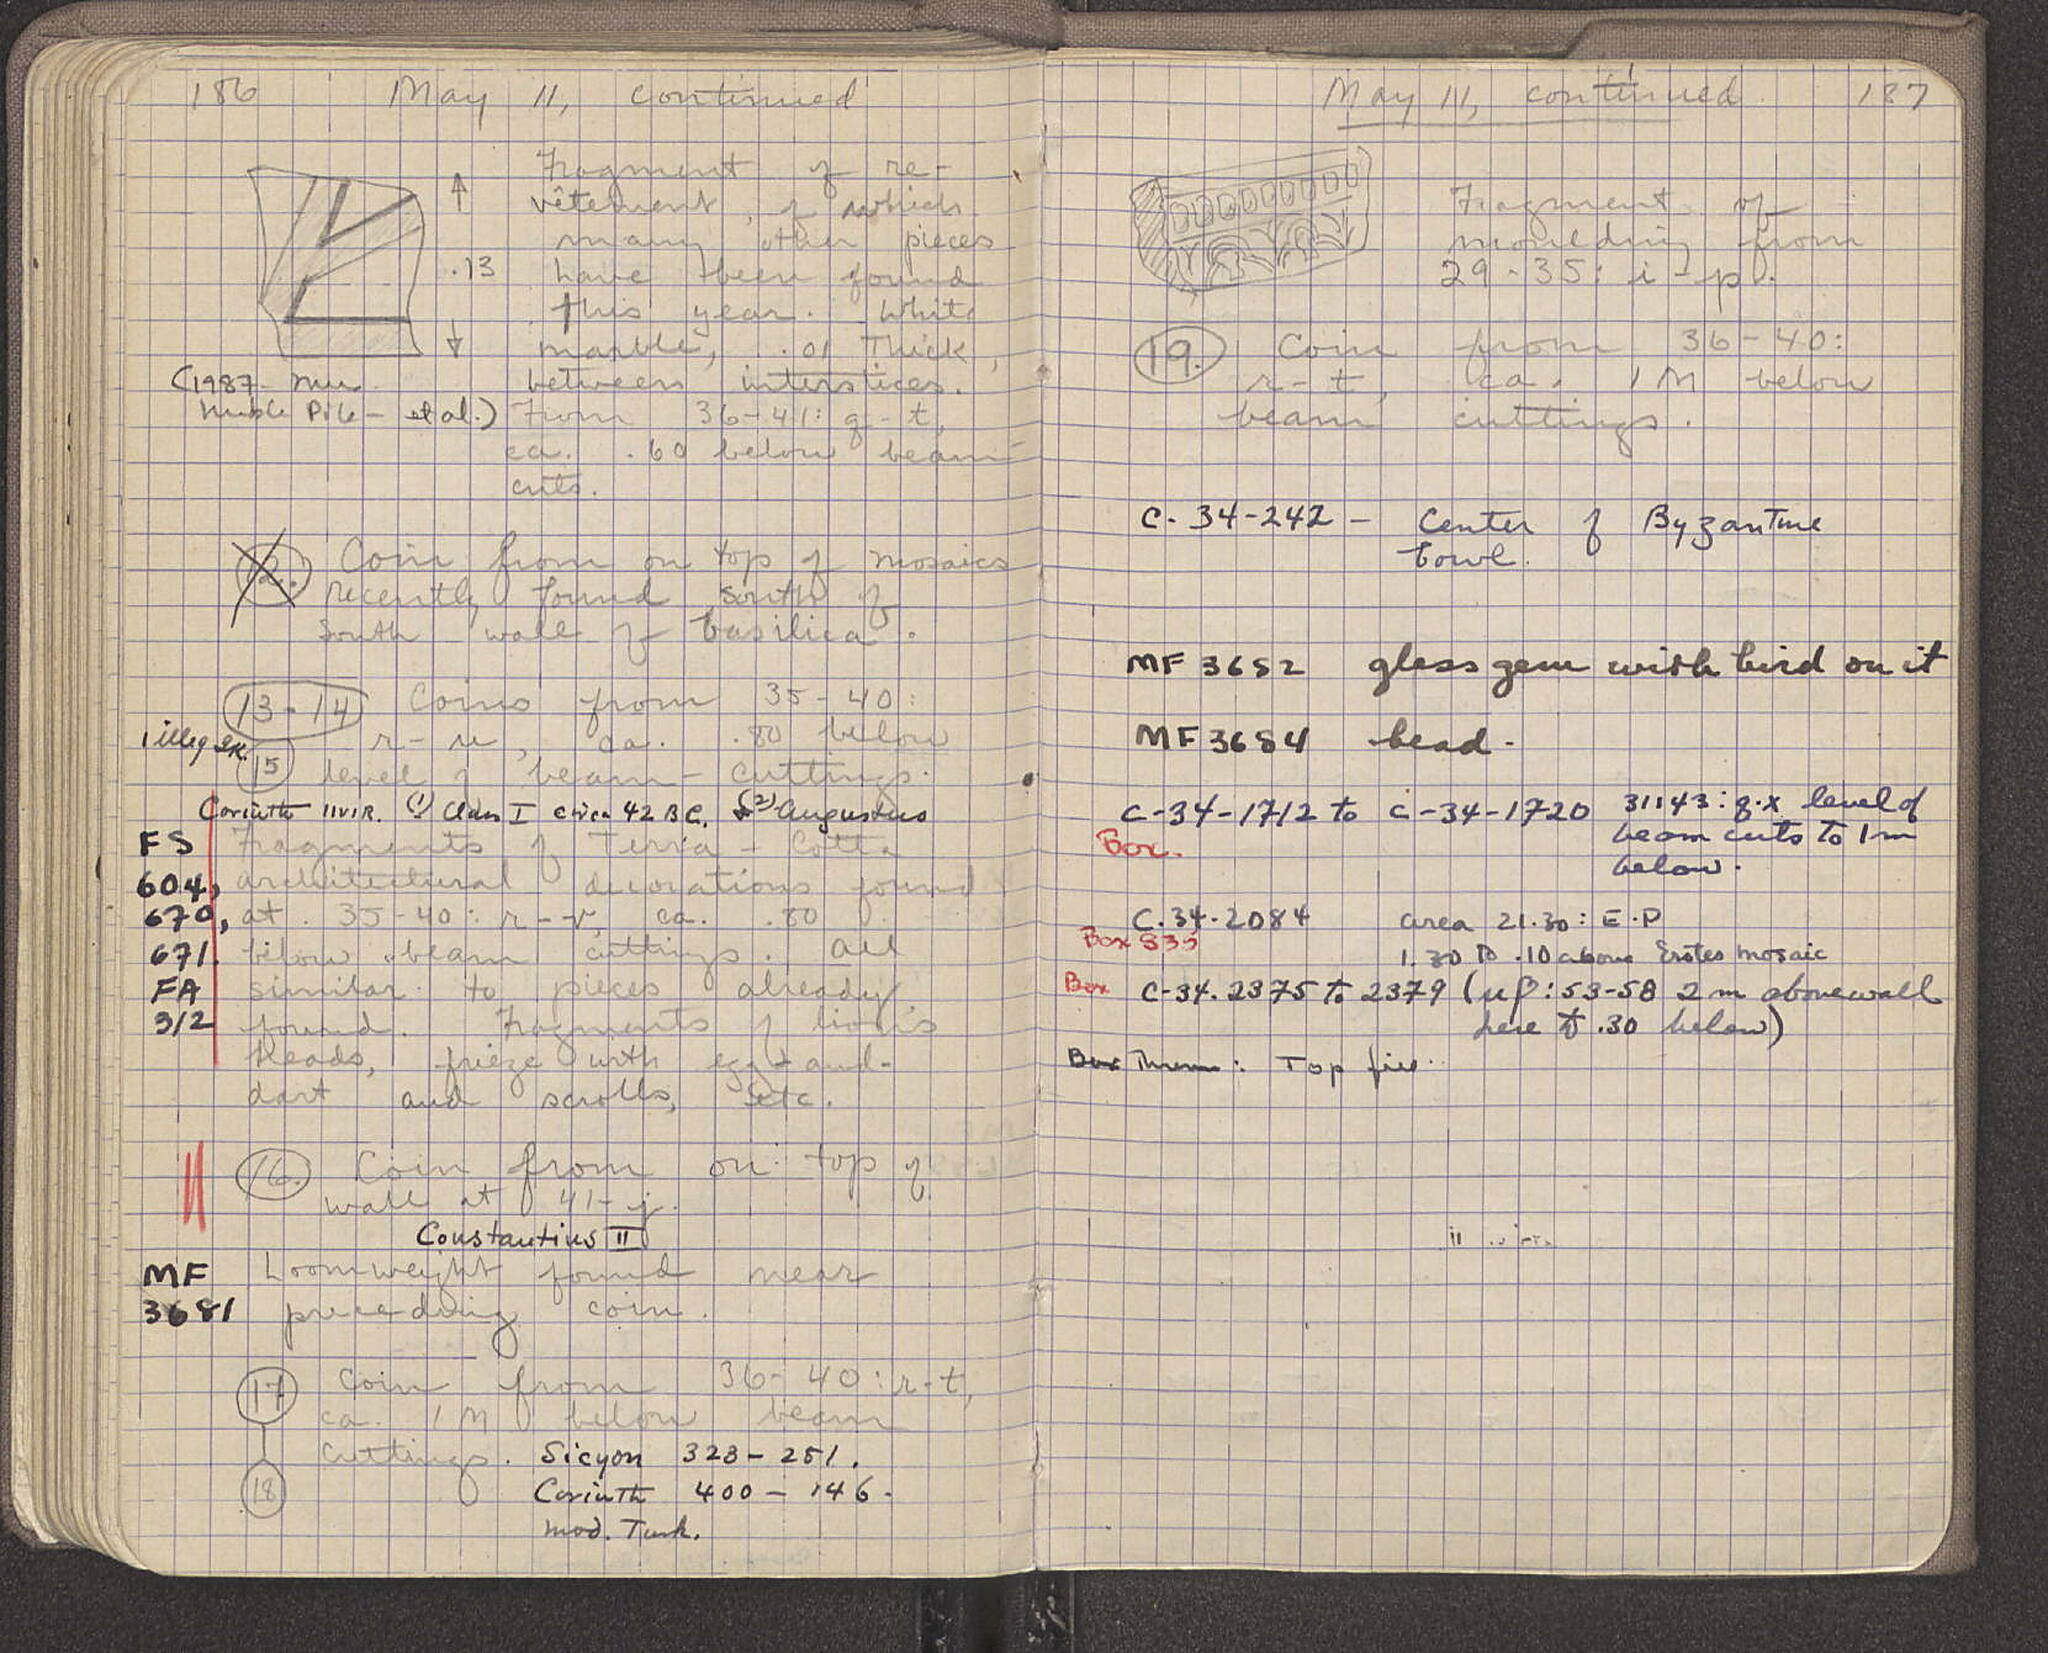 186 May 11, continued
Fragment of re-
vêtement, of which
many other pieces
.13 have been found
this year. White
marble, .01 thick,
between interstices.
(1987 -
Marble Pile - et al.)
From 36-41: q-t,
ca. .60 below beam
cuts.
12. Coin from on top of mosaics
recently found south of
south wall of basilica.
13-14 Coins from 35-40:
r-u, ca. .80 below
1 illeg Gk.
15 level of beam-cuttings.
Corinth IIVIR. (1) Class I circa 42 B.C. (2) Augustus
FS
604,
670,
671.
FA
312
Fragments of Terra-Cotta
architectural decorations found
at 35-40: r-v, ca. .80
below beam cuttings. All
similar to pieces already
found. Fragments of lion's
heads, frieze with egg-and-
dart and scrolls, etc.
16. Coin from on top of
wall at 41-j.
Constantius II
MF
3681
Loomweight found near
preceding coin.
17 Coin from 36-40: r-t,
ca. 1 M below beam
cuttings. Sicyon 323-251.
18 Corinth 400-146.
Mod. Turk.
May 11, continued 187
Fragment of
moulding from
29-35: i-p.
19. Coin from 36-40:
r-t, ca. 1 M below
beam cuttings.
C-34-242 - Center of Byzantine
bowl.
MF 3682 glass gem with bird on it
MF 3684 bead.
C-34-1712 to C-34-1720 31143: q-x level of
beam cuts to 1 m
below.
Box.
C-34-2084 area 21.30: E-P
1.30 to .10 above Erotes mosaic
Box 835
Box C-34-2375 to 2379 (up: 53-58 2m above wall
here to .30 below)
Box : Top